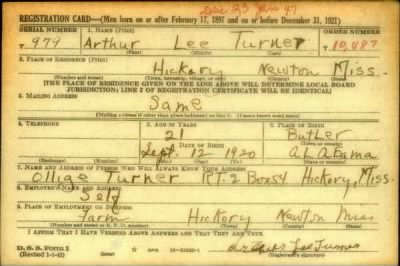 Dec 23
REGISTRATION CARD—(Men born on or after February 17, 1897 and on or before December 31, 1921)
SERIAL NUMBER 1. NAME (Print) ORDER NUMBER
T 979 Arthur Lee Turner T 10,487
(First) (Middle) (Last)
2. PLACE OF RESIDENCE (Print)
Hickory Newton Miss.
(Number and street) (Town, township, village, or city) (County) (State)
[THE PLACE OF RESIDENCE GIVEN ON THE LINE ABOVE WILL DETERMINE LOCAL BOARD
JURISDICTION; LINE 2 OF REGISTRATION CERTIFICATE WILL BE IDENTICAL]
3. MAILING ADDRESS
Same
[Mailing address if other than place indicated on line 2. If same insert word same]
4. TELEPHONE 5. AGE IN YEARS 6. PLACE OF BIRTH
21 Butler
DATE OF BIRTH (Town or county)
Sept. 12 1920 Alabama
(Exchange) (Number) (Mo.) (Day) (Yr.) (State or country)
7. NAME AND ADDRESS OF PERSON WHO WILL ALWAYS KNOW YOUR ADDRESS
Turner RT. 2 Box 54 Hickory, Miss.
8. EMPLOYER'S NAME AND ADDRESS
Self
9. PLACE OF EMPLOYMENT OR BUSINESS
Farm Hickory Newton Miss
(Number and street or R. F. D. number) (Town) (County) (State)
I AFFIRM THAT I HAVE VERIFIED ABOVE ANSWERS AND THAT THEY ARE TRUE.
D. S. S. Form 1
(Revised 1-1-42) Lee Turner